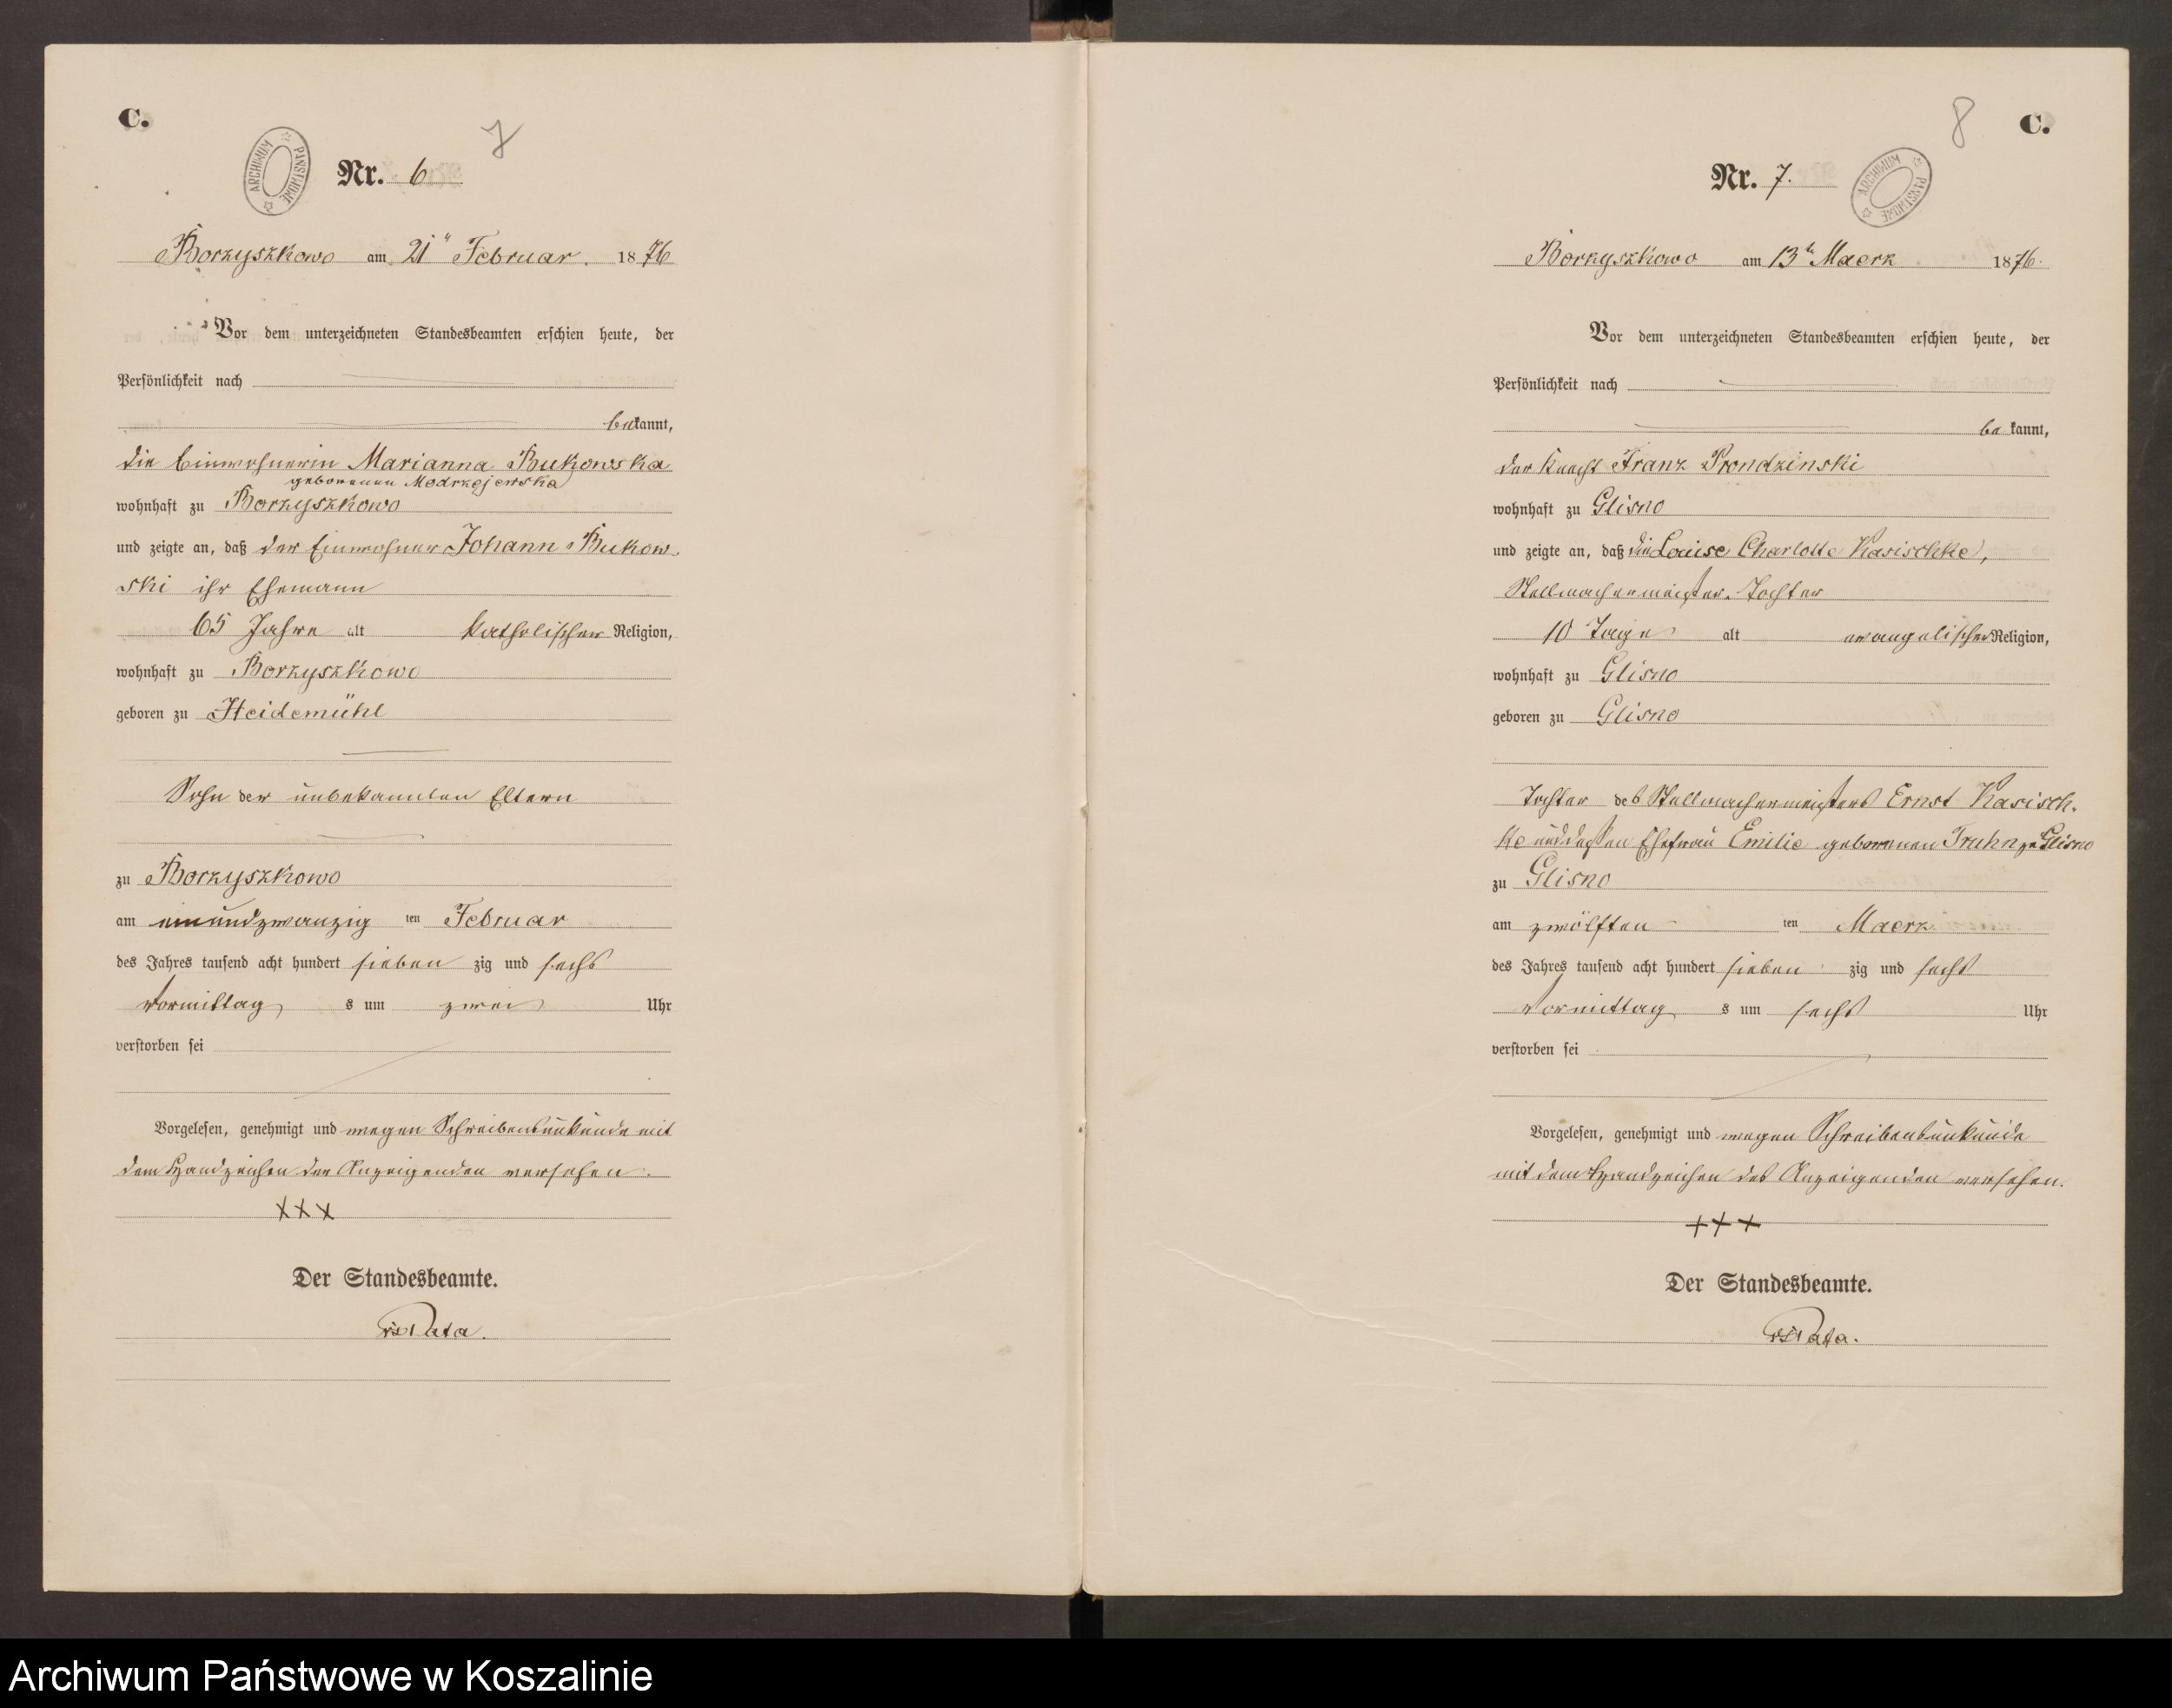 C.
7
ARCHIWUM PAŃSTWOWE
Nr. 6
Borzyszkowo am 21ten Februar. 1876
Vor dem unterzeichneten Standesbeamten erschien heute, der
Persönlichkeit nach
bekannt,
die Einwohnerin Marianna Bukowska
geborenen Modrzejewska
wohnhaft zu Borzyszkowo
und zeigte an, daß der Einwohner Johann Bukow-
ski ihr Ehemann
65 Jahre alt katholischer Religion,
wohnhaft zu Borzyszkowo
geboren zu Heidemühl
Sohn der unbekannten Eltern
zu Borzyszkowo
am einundzwanzig ten Februar
des Jahres tausend acht hundert sieben zig und sechs
Vormittag s um zwei Uhr
verstorben sei
Vorgelesen, genehmigt und wegen Schreibensunkunde mit
dem Handzeichen der Anzeigenden versehen.
XXX
Der Standesbeamte.
Pata.
8
C.
Nr. 7.
ARCHIWUM PAŃSTWOWE
Borzyszkowo am 13ten Maerz 1876.
Vor dem unterzeichneten Standesbeamten erschien heute, der
Persönlichkeit nach
bekannt,
der Knecht Franz Prondzinski
wohnhaft zu Glisno
und zeigte an, daß die Louise Charlotte Kasischke,
Stellmachermeister-Tochter
10 Tage alt evangelischer Religion,
wohnhaft zu Glisno
geboren zu Glisno
Tochter des Stellmachermeisters Ernst Kasisch-
ke und dessen Ehefrau Emilie geborenen Truhn zu Glisno
zu Glisno
am zwölften ten Maerz
des Jahres tausend acht hundert sieben zig und sechs
Vormittag s um sechs Uhr
verstorben sei
Vorgelesen, genehmigt und wegen Schreibensunkunde
mit dem Handzeichen des Anzeigenden versehen.
+++
Der Standesbeamte.
Pata.
Archiwum Państwowe w Koszalinie